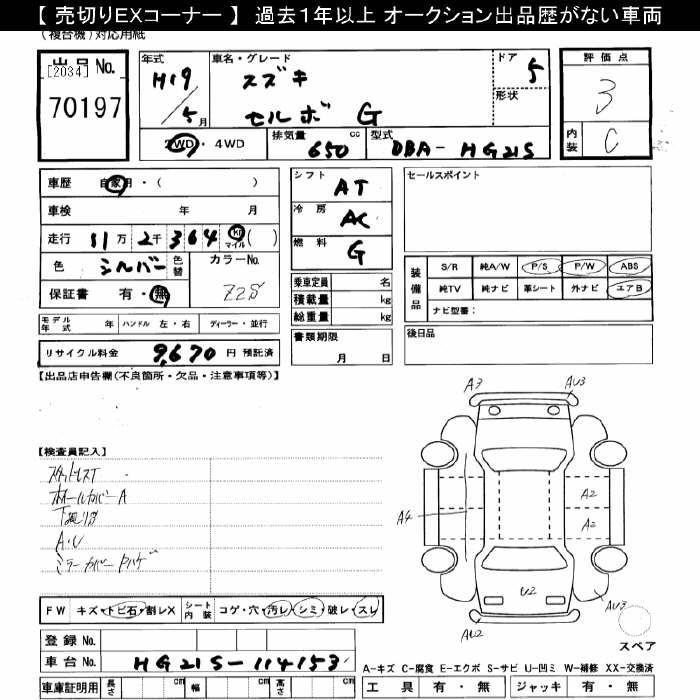 【 売切りEXコーナー 】 過去１年以上 オークション出品歴がない車両
(複合機)対応用紙
出品No.
[2034]
70197
年式
H19
/5月
車名・グレード
スズキ
セルボ G
ドア
5
形状
評価点
3
内装
C
2WD・4WD
排気量
650
cc
型式
DBA-HG21S
車歴
自家用・( )
車検 年 月
走行
11万2千364
km
マイル
( )
色
シルバー
色替
カラーNo.
Z2S
保証書 有・無
モデル年式 年
ハンドル 左・右
ディーラー・並行
リサイクル料金
9,670
円 預託済
シフト
AT
冷房
AC
燃料
G
乗車定員 名
積載量 kg
総重量 kg
書類期限
月 日
セールスポイント
装備品
S/R 純A/W P/S P/W ABS
純TV 純ナビ 革シート 外ナビ エアB
ナビ型番:
後日品
【出品店申告欄(不良箇所・欠品・注意事項等)】
【検査員記入】
スタッドレスT
ホイールカバーA
下廻りサビ
A・U
ミラーカバーPハゲ
A3
AU3
A4
A2
A2
U2
AU2
AU3
スペア
FW キズ・トビ石・割レX
シート内装
コゲ・穴・汚レ・シミ・破レ・スレ
登録No.
車台No.
HG21S-114153
車庫証明用
長さ cm
幅 cm
高さ cm
A-キズ C-腐食 E-エクボ S-サビ U-凹ミ W-補修 XX-交換済
工具 有・無
ジャッキ 有・無